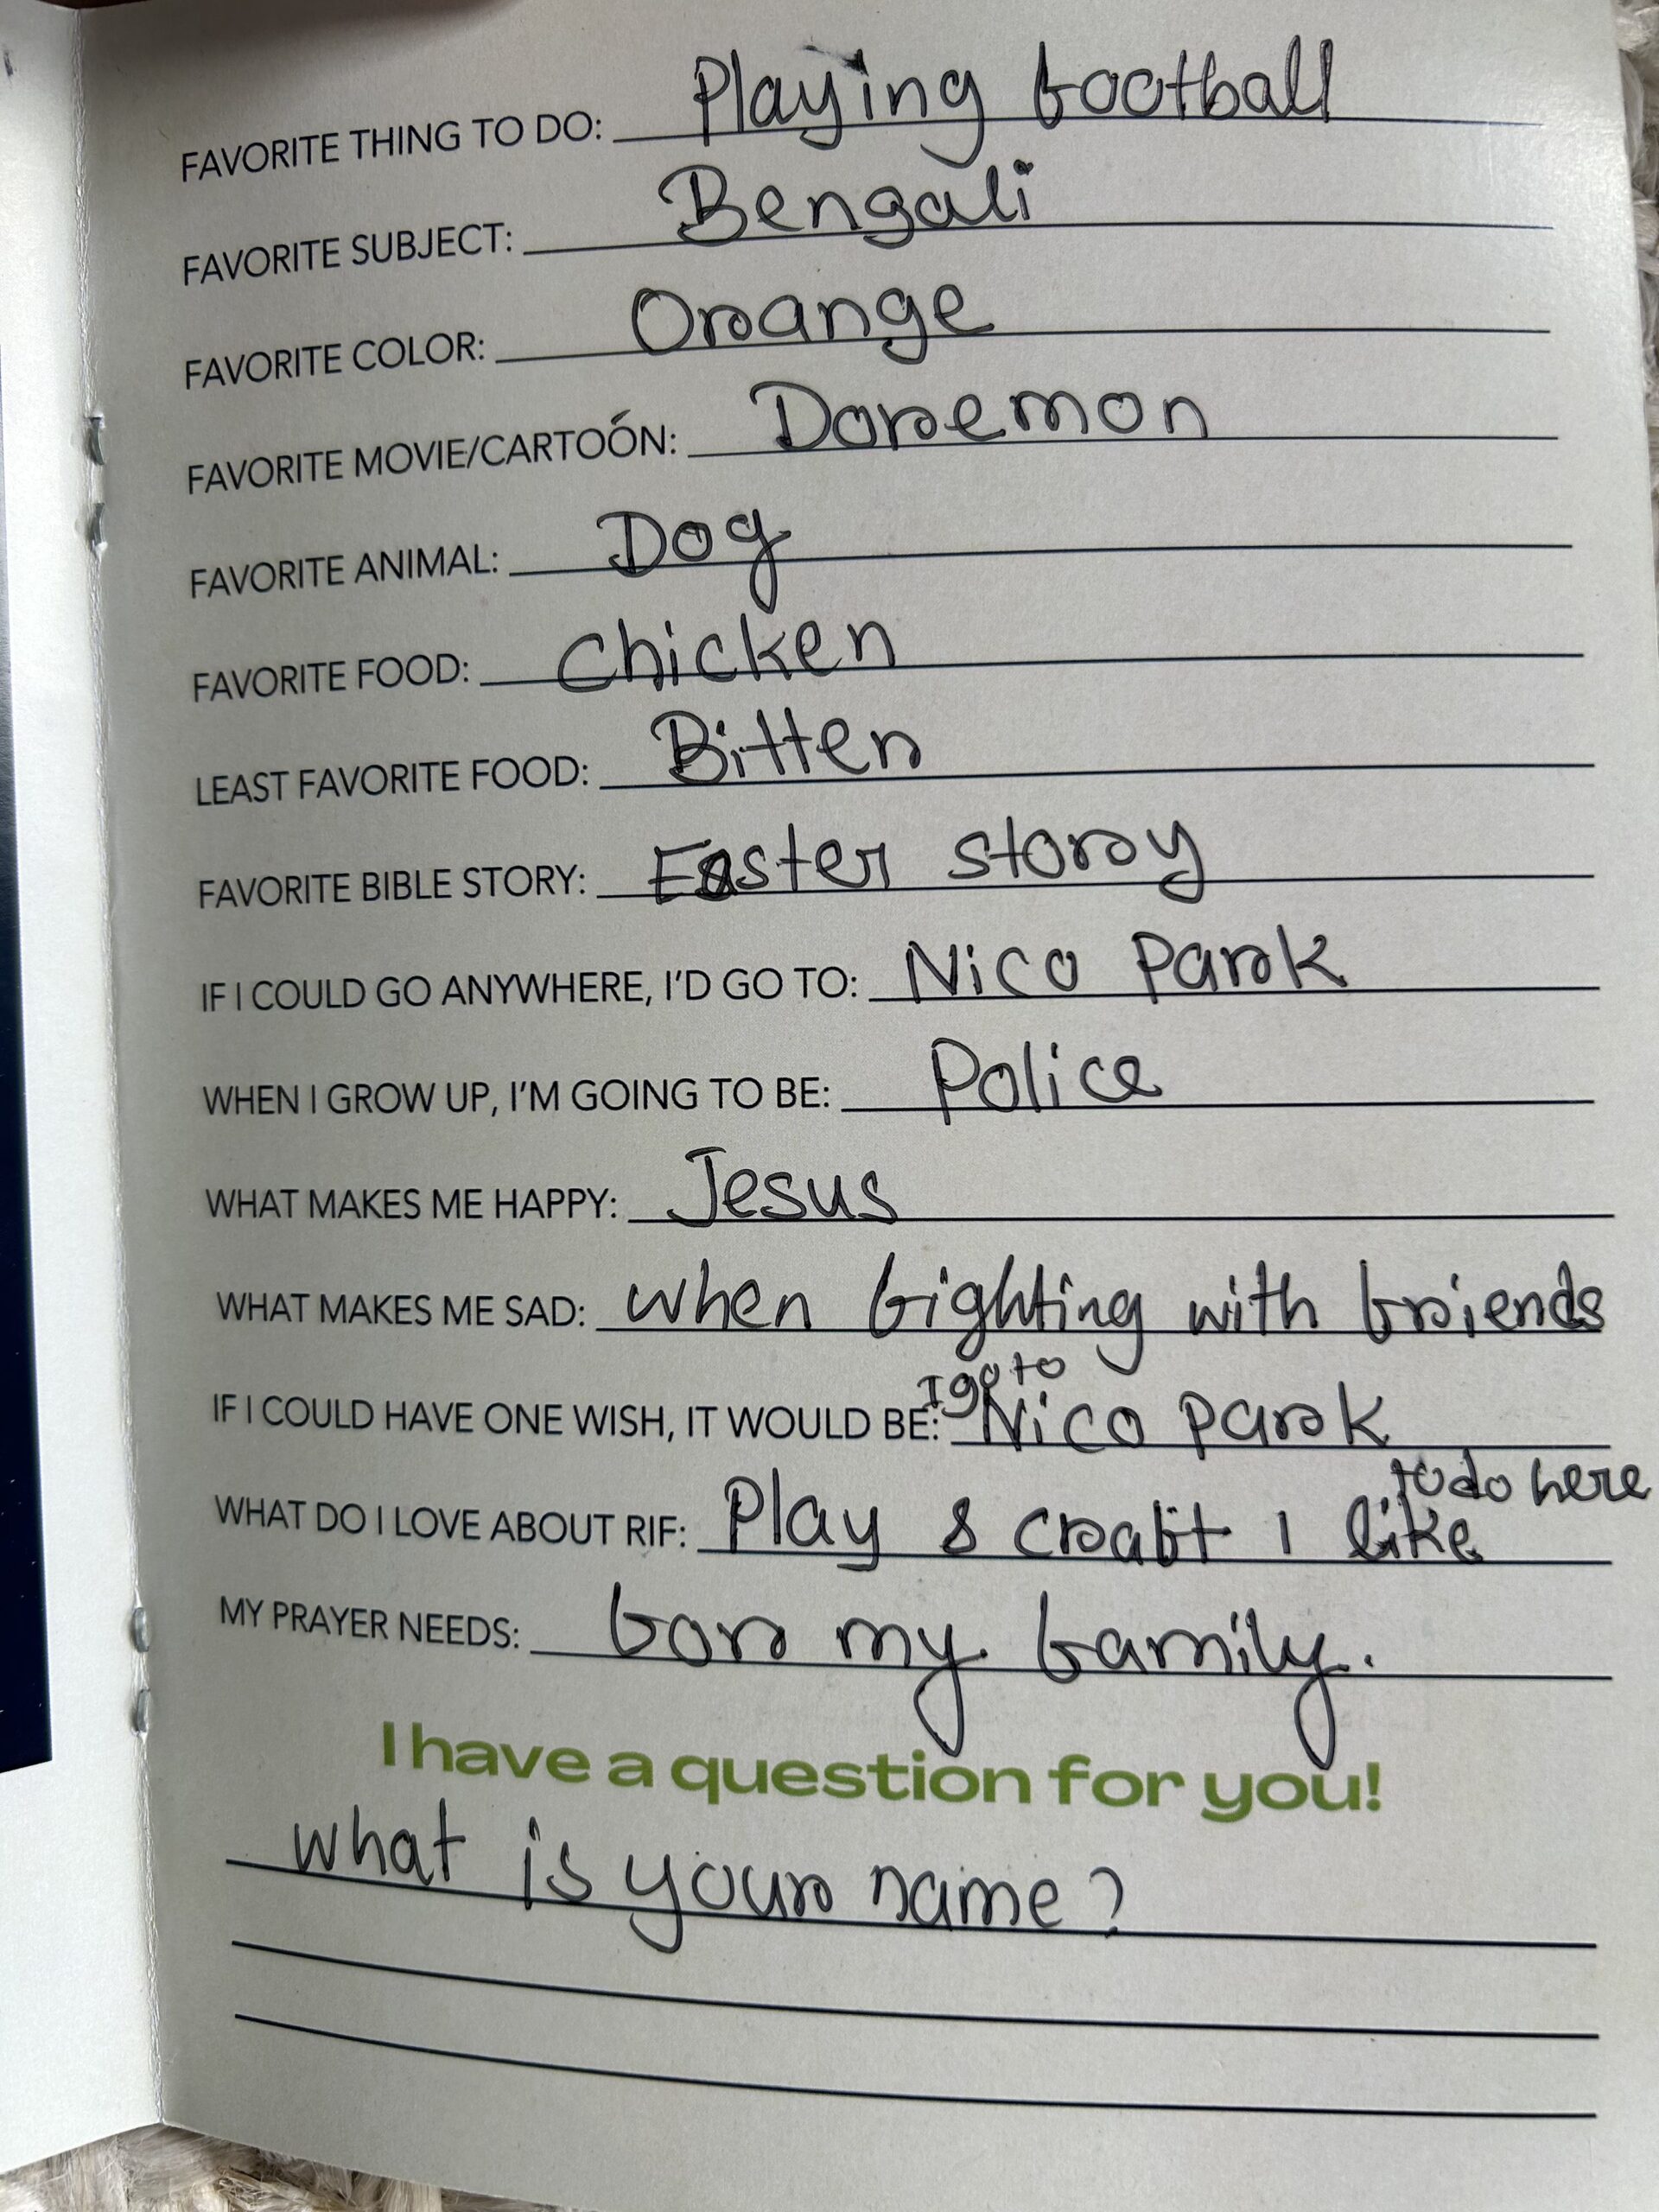 FAVORITE THING TO DO: Playing football
FAVORITE SUBJECT: Bengali
FAVORITE COLOR: Orange
FAVORITE MOVIE/CARTOÓN: Doremon
FAVORITE ANIMAL: Dog
FAVORITE FOOD: Chicken
LEAST FAVORITE FOOD: Bitter
FAVORITE BIBLE STORY: Easter story
IF I COULD GO ANYWHERE, I'D GO TO: Nico Park
WHEN I GROW UP, I'M GOING TO BE: Police
WHAT MAKES ME HAPPY: Jesus
WHAT MAKES ME SAD: when fighting with friends
I go to
IF I COULD HAVE ONE WISH, IT WOULD BE: Nico Park
to do here
WHAT DO I LOVE ABOUT RIF: Play & craft I like
MY PRAYER NEEDS: for my family.
I have a question for you!
what is your name?